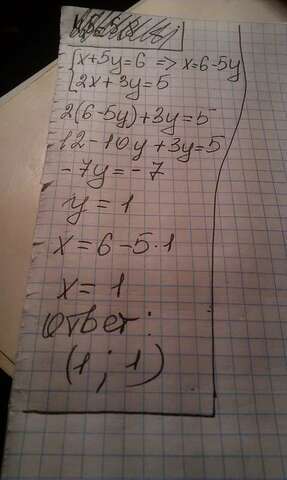 x+5y=6 => x=6-5y
2x+3y=5
2(6-5y)+3y=5
12-10y+3y=5
-7y=-7
y=1
x=6-5·1
x=1
Ответ:
(1; 1)